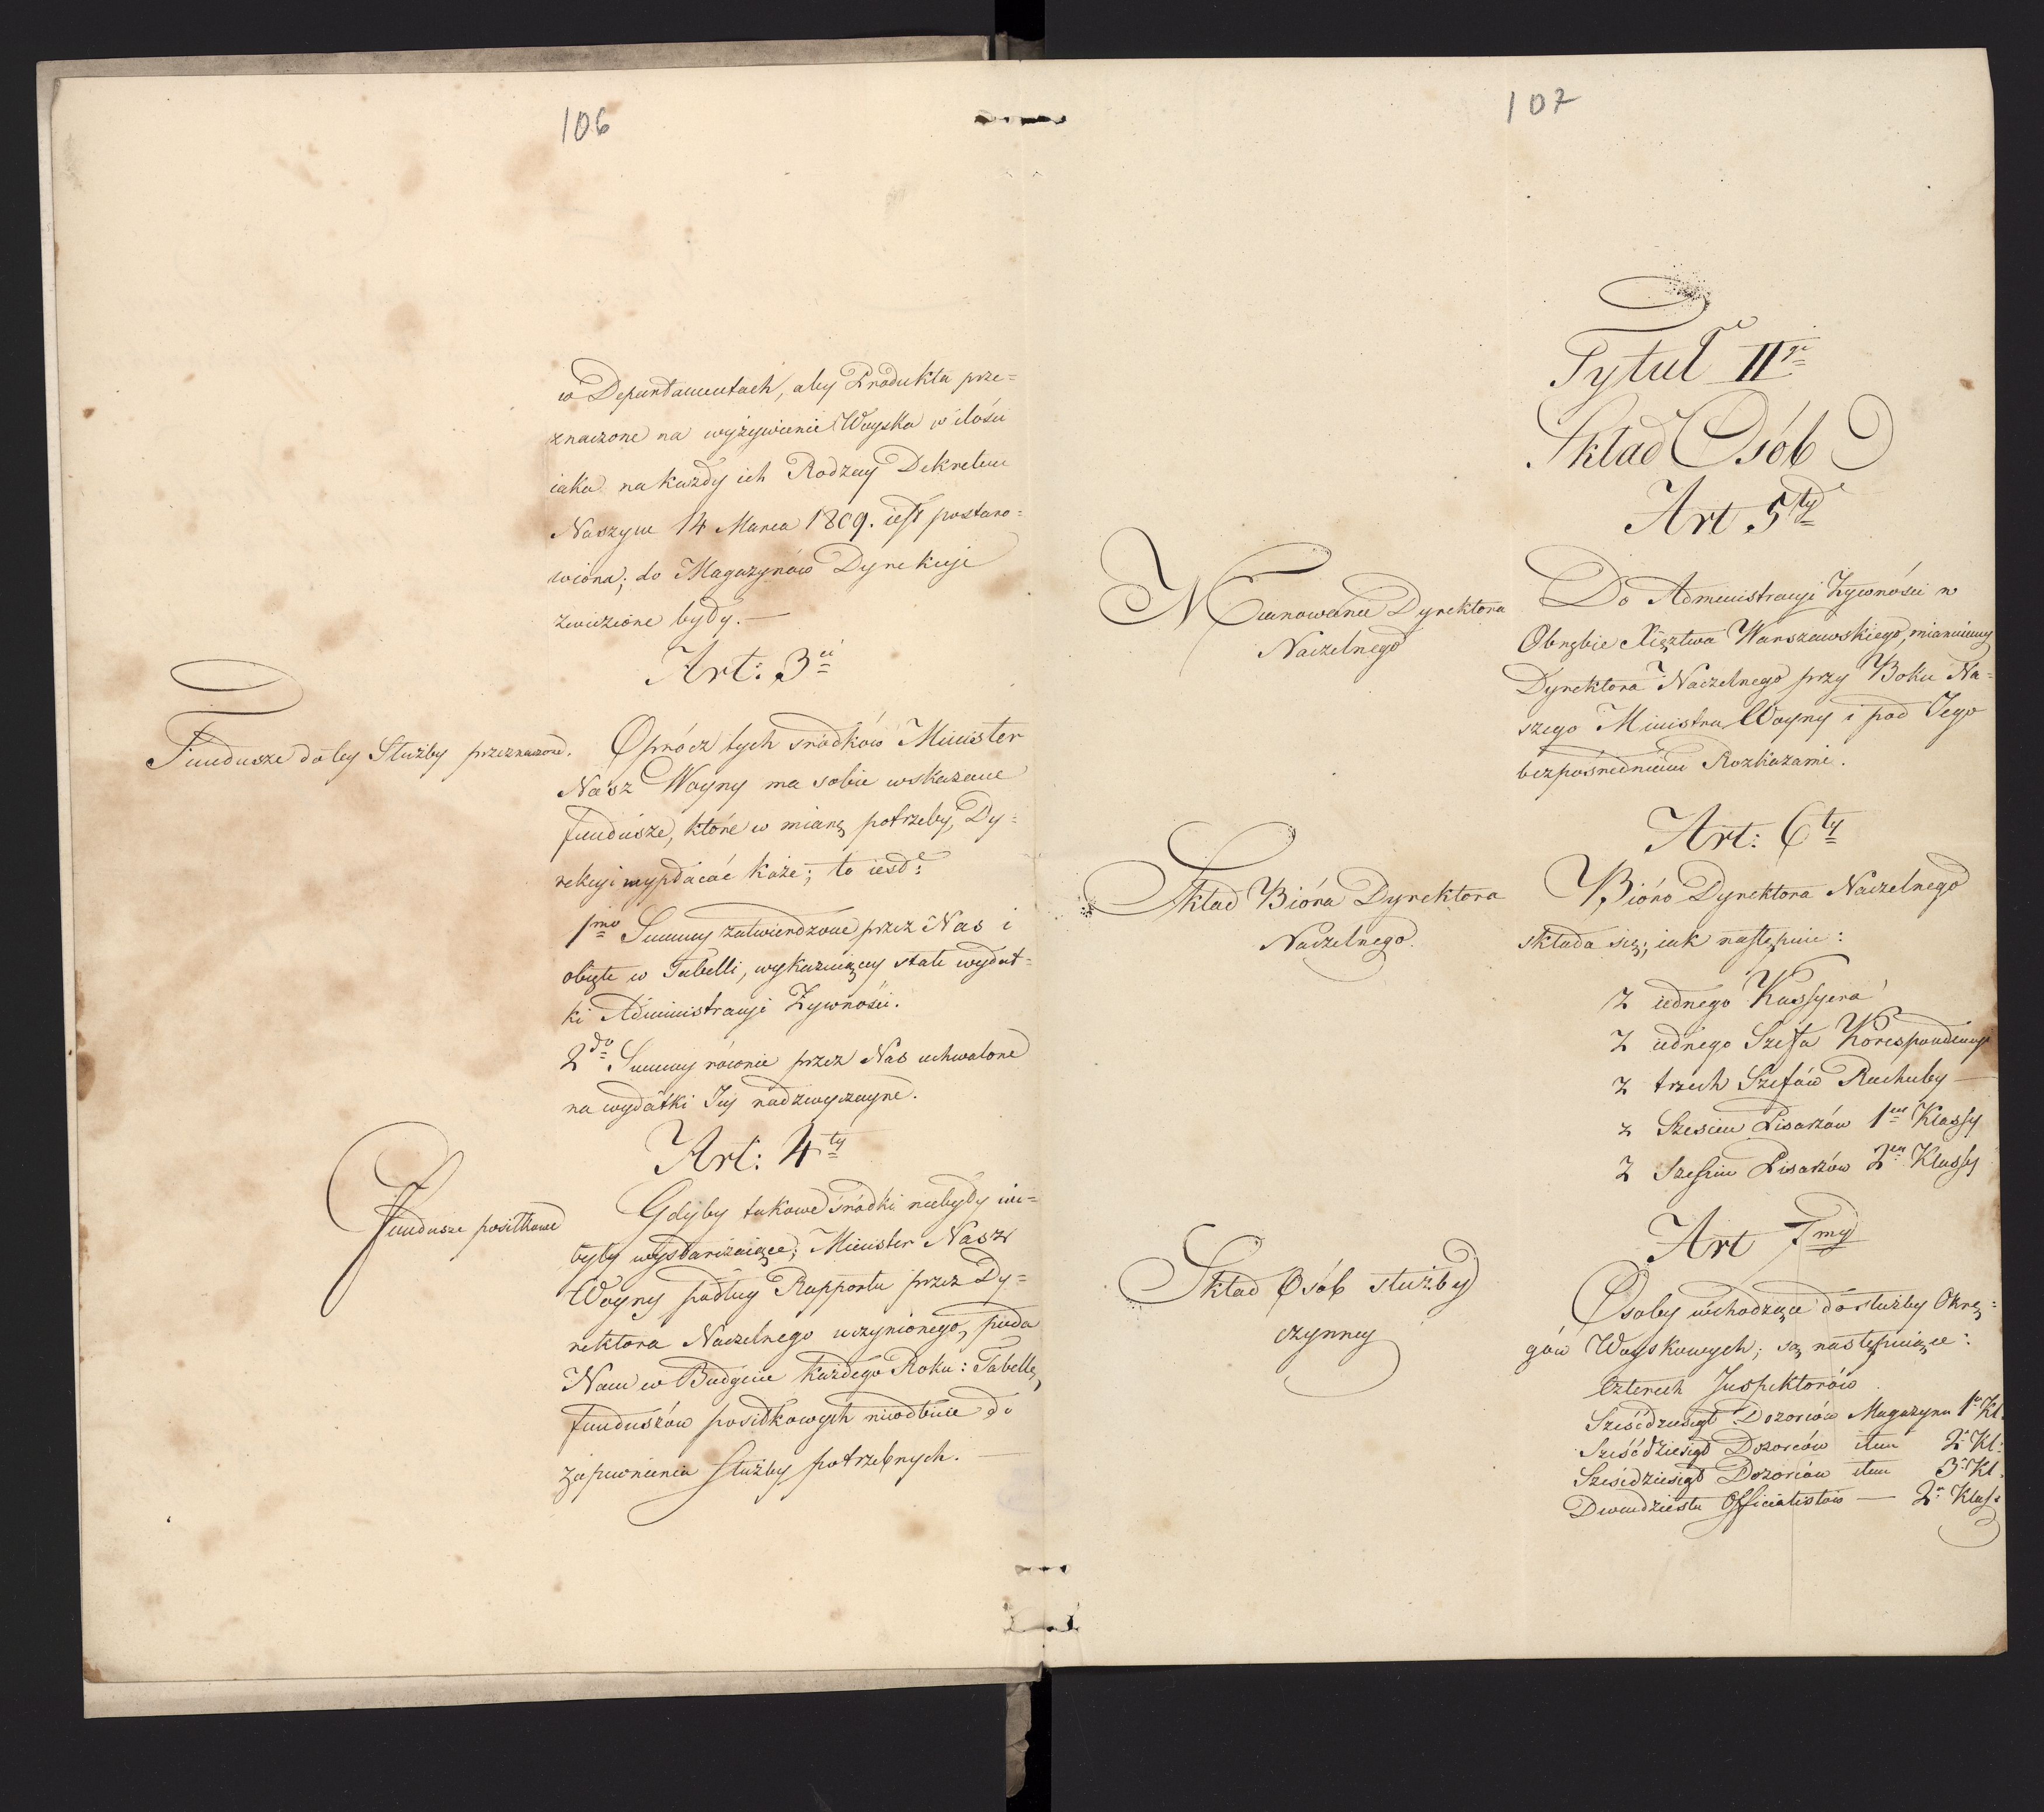 106
w Departamentach, aby Produkta prze=
znaczone na wyżywienie Woyska w ilości
iaka na każdy ich Rodzay Dekretem
Naszym 14 Marca 1809. iest postano=
wiona; do Magazynów Dyrekcyi
zwiezione były. —
Art: 3ci
Fundusze do tey Służby przeznaczone.
Oprócz tych srodków Minister
Nasz Woyny ma sobie wskazane
fundusze, które w miarę potrzeby, Dy=
rekcyi wypłacać każe; to iest:
1mo Summy zatwierdzone przez Nas i
obięte w Tabelli, wykazuiącey stałe wydat=
ki Administracyi Żywności.
2do Summy równie przez Nas uchwalone
na wydatki Jey nadzwyczayne.
Art: 4ty
Fundusze posiłkowe
Gdyby takowe śrzodki niebyły
były wystarczaiące; Minister Nasz
Woyny podług Rapportu przez Dy=
rektora Naczelnego uczynionego, poda
Nam w Budgecie każdego Roku: Tabellę,
funduszów posiłkowych nieodbicie do
zapewnienia służby potrzebnych. —
107
Tytuł IIgi
Skład Osób
Art 5ty
Mianowanie Dyrektora
Naczelnego
Do Administracyi Żywności w
Obrębie Xięztwa Warszawskiego, mianuiemy
Dyrektora Naczelnego przy Boku Na=
szego Ministra Woyny i pod Jego
bezpośredniemi Rozkazami.
Art: 6ty
Skład Bióra Dyrektora
Naczelnego.
Bióro Dyrektora Naczelnego
składa się; iak następuie:
Z iednego Kassyera
Z iednego Szefa Korespondencyi
z trzech Szefów Rachuby —
z Sześciu Pisarzów 1ey Klassy
Z Sześciu Pisarzów 2ey Klassy
Art 7my
Skład Osób służby
czynney
Osoby wchodzące do służby Okrę=
gów Woyskowych; są następuiące:
Czterech Inspektorów
Sześćdziesiąt Dozorców Magazynu 1ey Kl.
Sześćdziesiąt Dozorców item 2. Kl:
Sześćdziesiąt Dozorców item 3. Kl.
Dwudziestu Officialistów — 2. Klass